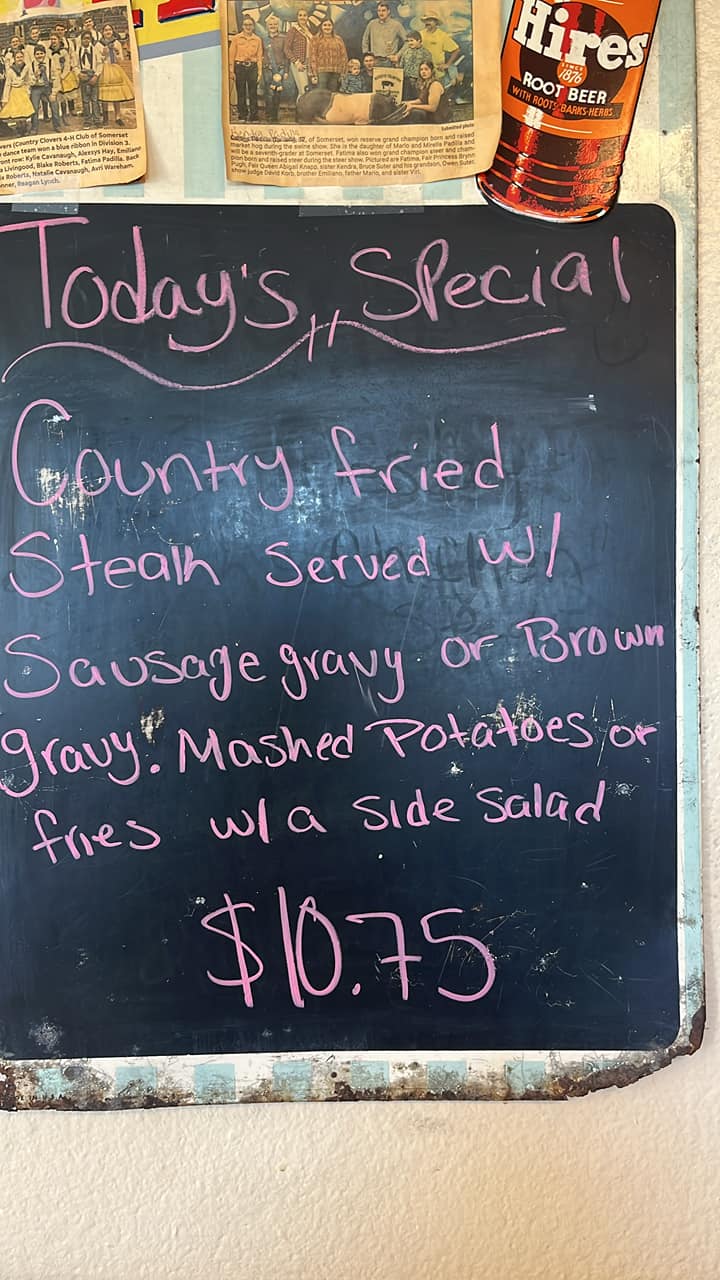 vers (Country Clovers 4-H Club of Somerset
dance team won a blue ribbon in Division 3.
ont row: Kylie Cavanaugh, Alexsys Hay, Emiliano
a Livingood, Blake Roberts, Fatima Padilla. Back
Roberts, Natalie Cavanaugh, Avri Wareham.
nner, Reagan Lynch.
Submitted photo
12, of Somerset, won reserve grand champion born and raised
market hog during the swine show. She is the daughter of Mario and Mirella Padilla and
will be a seventh-grader at Somerset. Fatima also won grand champion steer and cham-
pion born and raised steer during the steer show. Pictured are Fatima, Fair Princess Brynn
Pugh, Fair Queen Abigail Knapp, sister Kendra, Bruce Suter and his grandson, Owen Suter,
show judge David Korb, brother Emiliano, father Mario, and sister Viri.
Hires
SINCE
1876
ROOT BEER
WITH ROOTS·BARKS·HERBS
Today's Special
Country fried
Steak Served w/
Sausage gravy or Brown
gravy. Mashed Potatoes or
fries w/ a Side Salad
$10.75